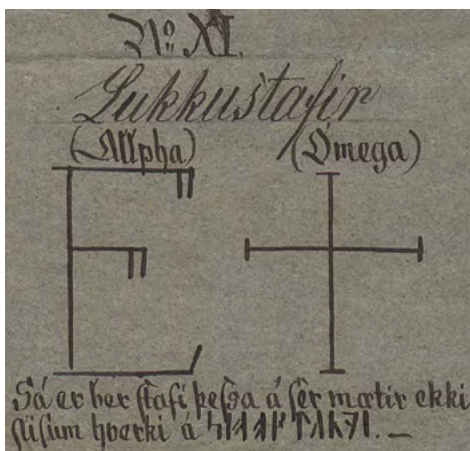 No XI.
Lukkustafir
(Allpha) (Ómega)
Sá er ber stafi þessa á sér mætir ekki
slísum hverki á